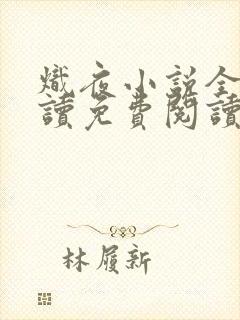 熾夜小說全
讀免費閱讀
林履新